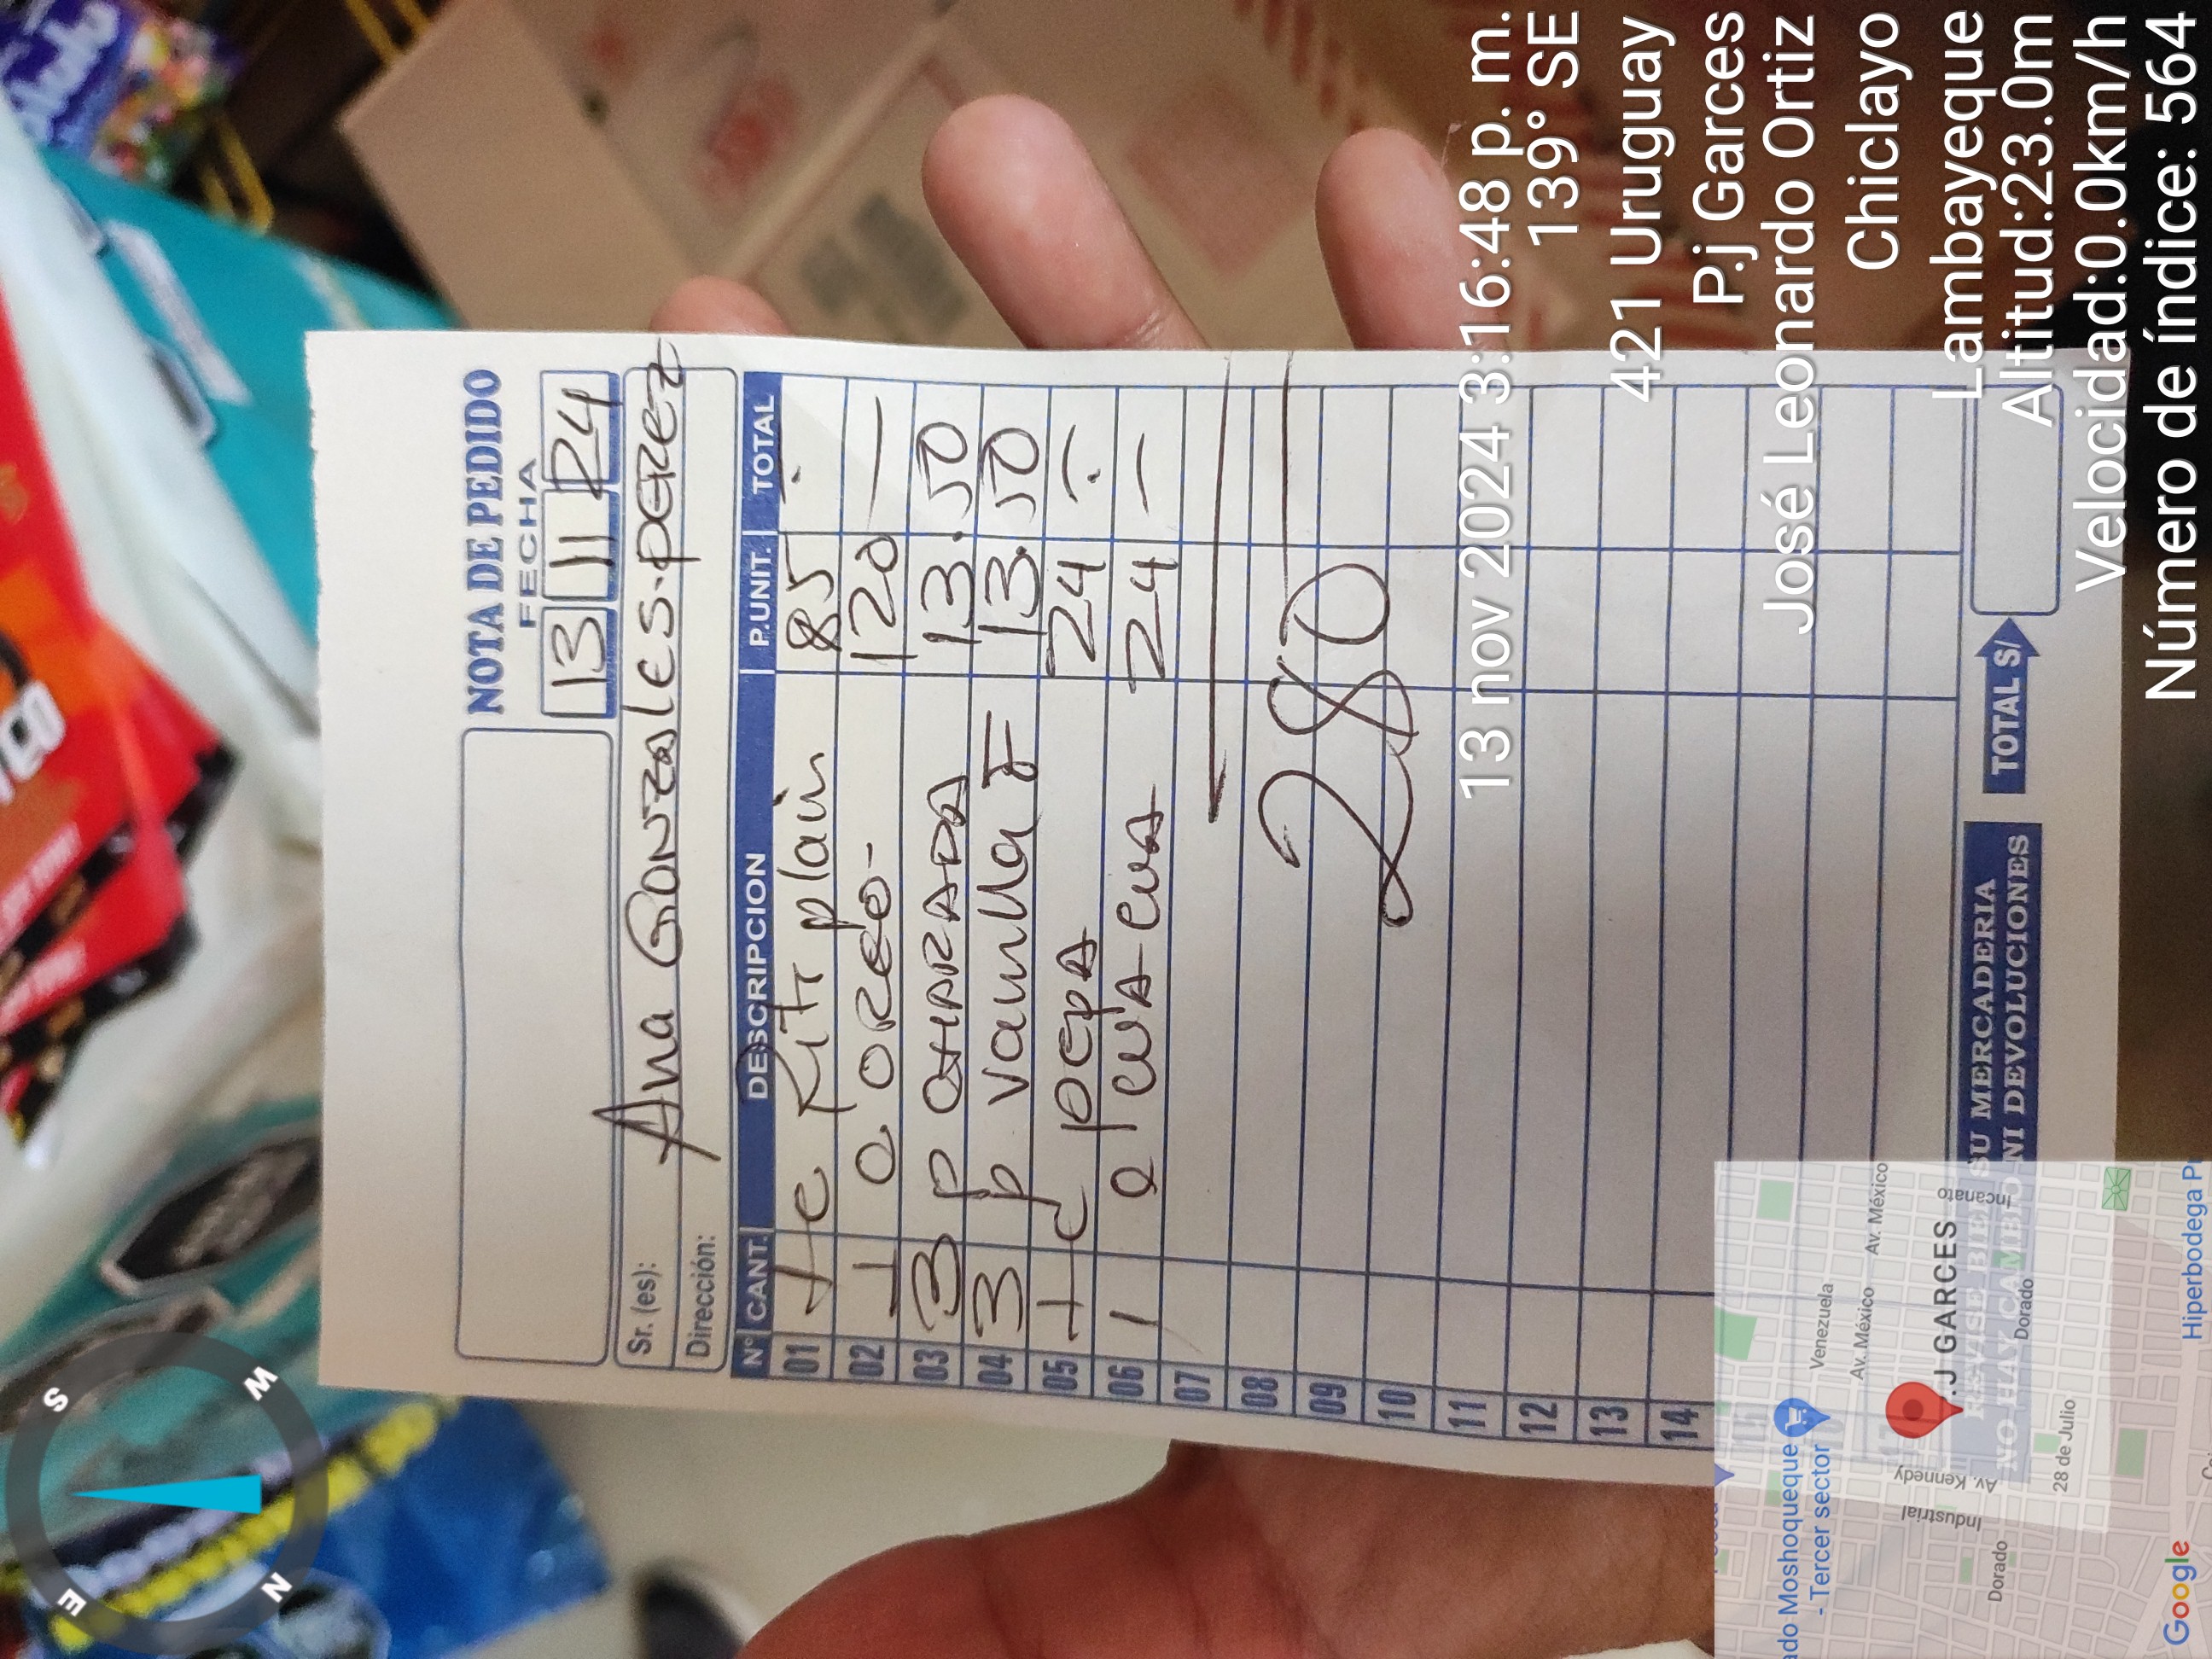 S
E
W
N
NOTA DE PEDIDO
FECHA
13 11 24
Sr. (es): Ana GONZALES PEREZ
Dirección:
Nº CANT. DESCRIPCION P.UNIT. TOTAL
01 1 c Ritz plain 85 -
02 1 c OREO- 120 —
03 3 p CHARADA 13.50
04 3 p vainilla F 13.50
05 1 c pepA 24 -
06 1 c CUA CUA 24 —
07
08
280
09
10
11
12
13
14
15
REVISE BIEN SU MERCADERIA
NO HAY CAMBIO NI DEVOLUCIONES
TOTAL S/
13 nov 2024 3:16:48 p. m.
139° SE
421 Uruguay
P.j Garces
José Leonardo Ortiz
Chiclayo
Lambayeque
Altitud:23.0m
Velocidad:0.0km/h
Número de índice: 564
ado Moshoqueque
- Tercer sector
Venezuela
Av. México
Av. México
Industrial
Av. Kennedy
.J GARCES
Incanato
Dorado
Dorado
28 de Julio
Google
Hiperbodega Pr